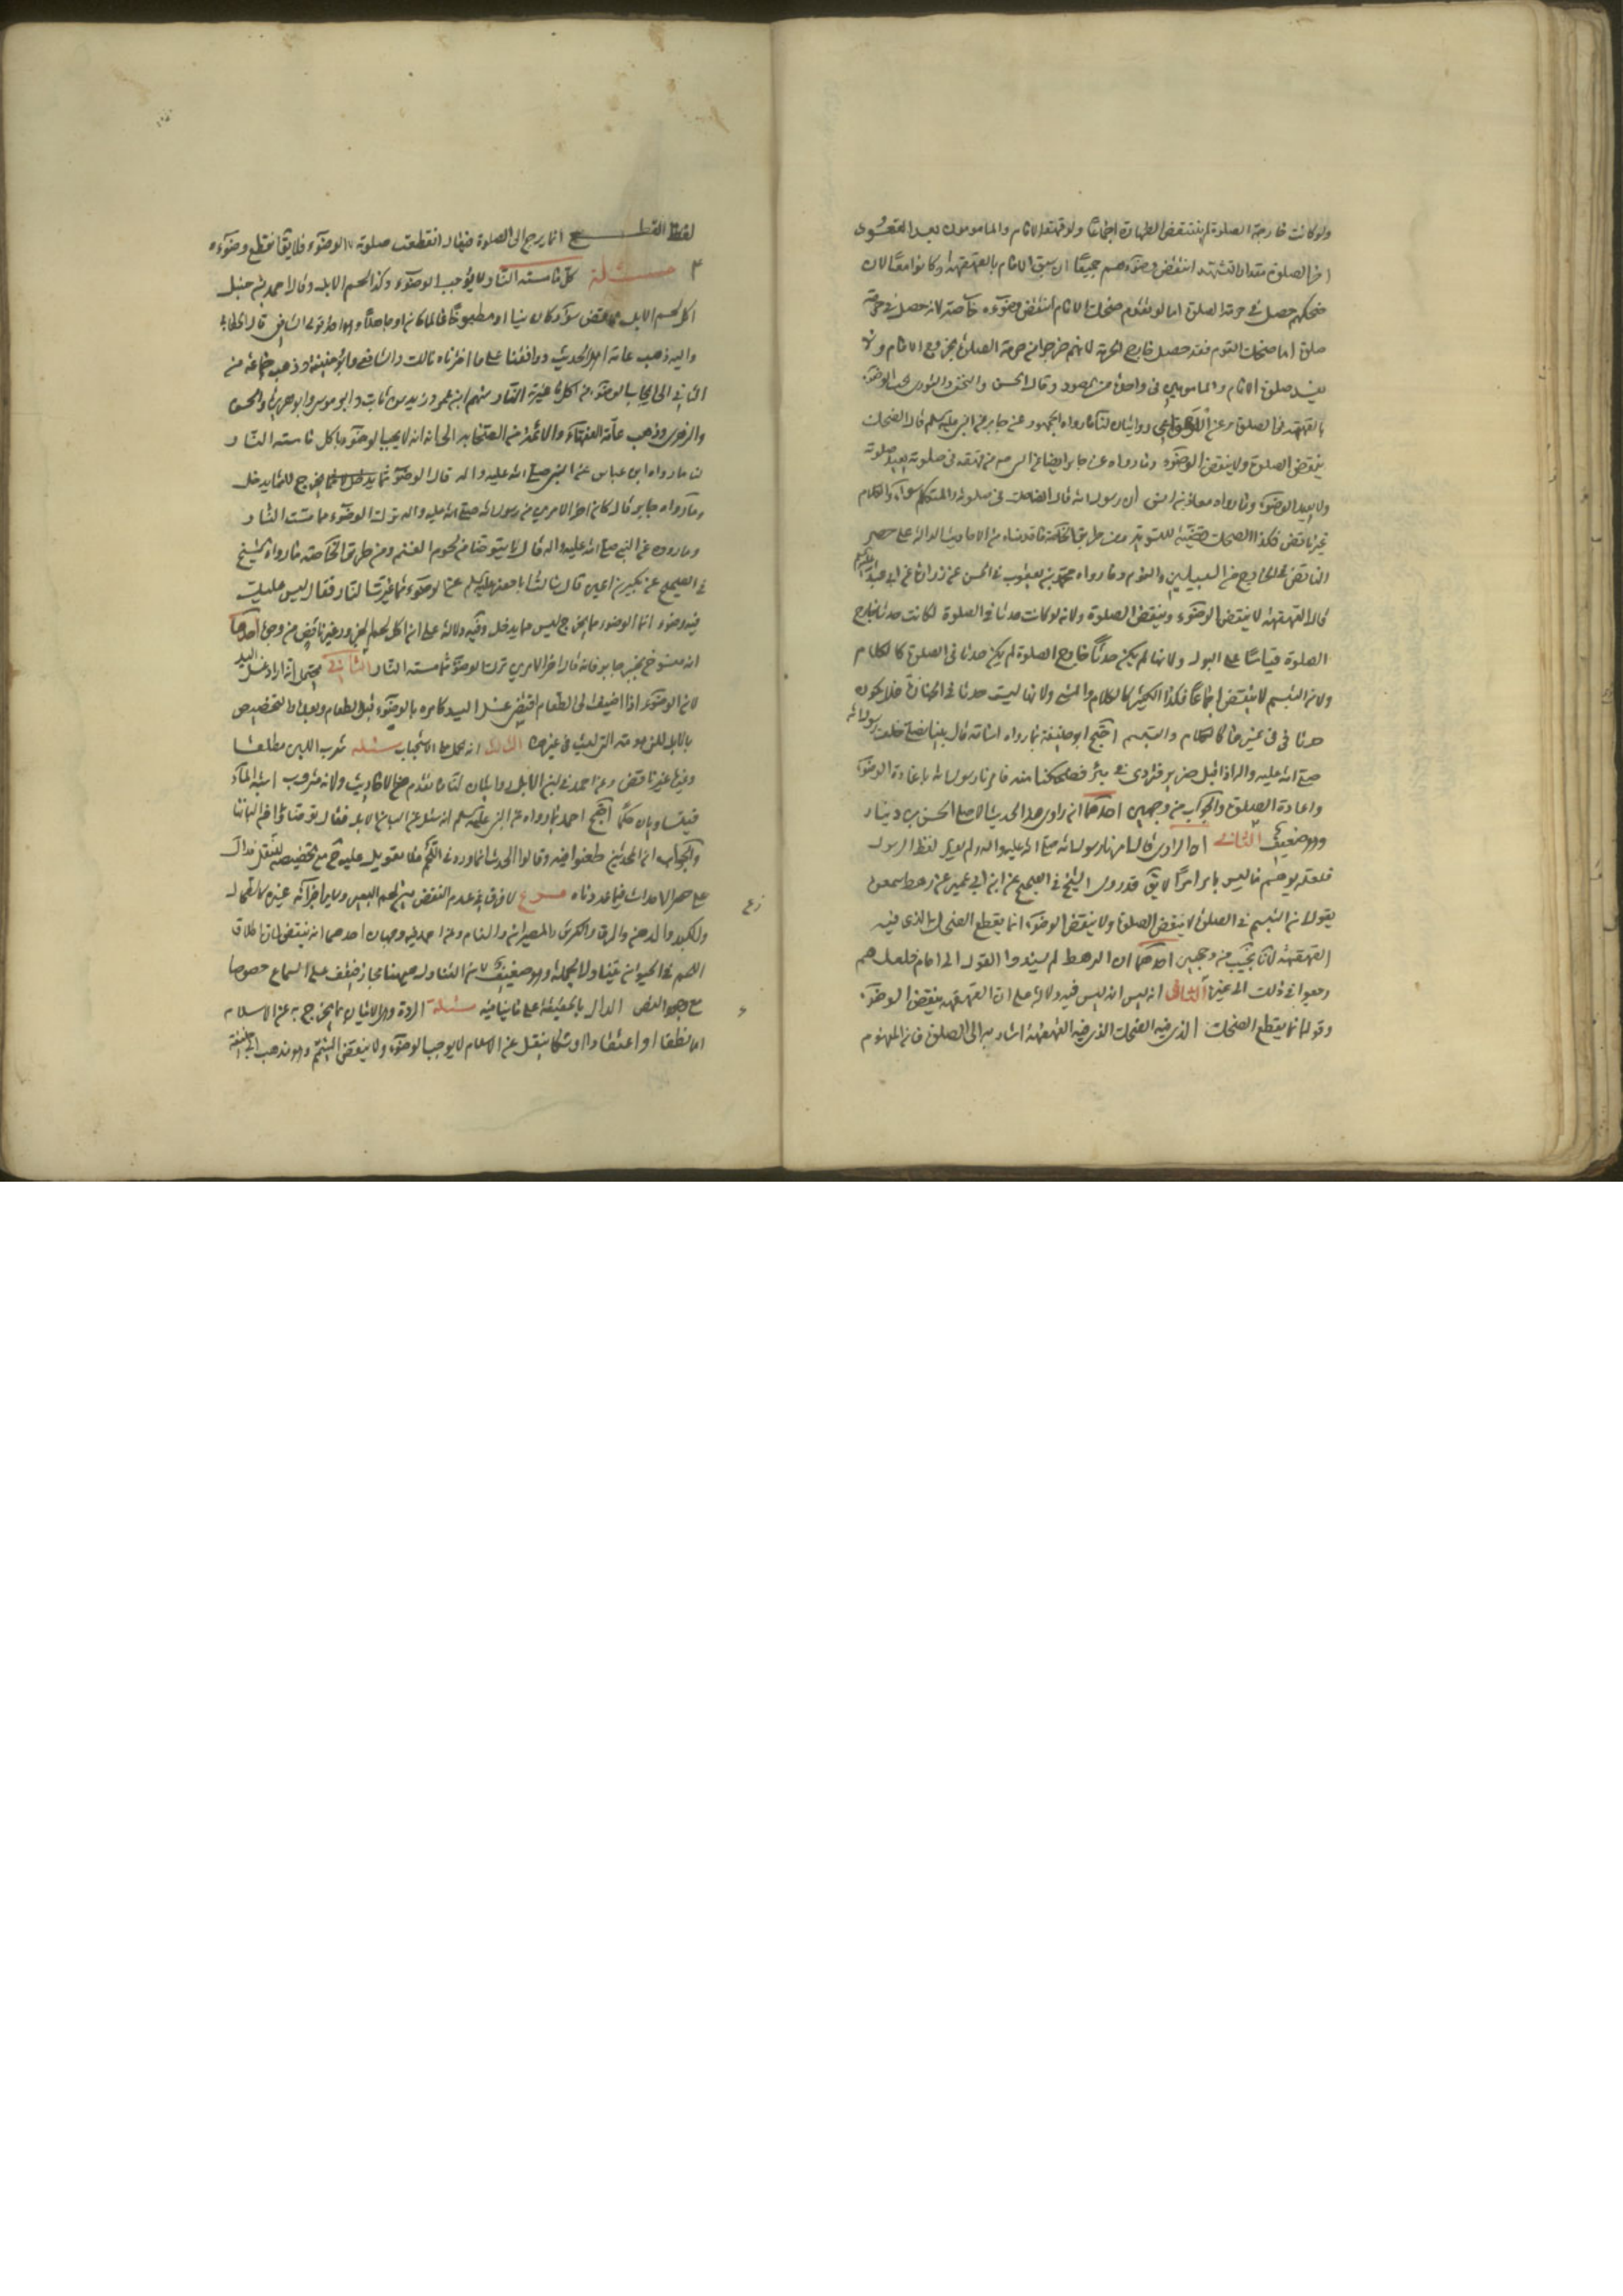 ولو كانت خارجة الصلوة لم ينتقض الطهارة اجماعا ولو قهقه الامام والمامومون بعد القعود في
اخر الصلوة مقدار التشهد انتقض وضوءهم جميعا ان سبق الامام بالقهقهة او كانوا معا لان
ضحكهم حصل في حرمة الصلوة اما لو تقدم ضحك الامام انتقض وضوءه خاصة لانه حصل في حرمة
صلوة اما ضحك القوم فقد حصل خارج الحرمة لانهم خرجوا من حرمة الصلوة بخروج الامام ولا
يفسد صلوة الامام والمامومين في واحدة من الصور وقال الحسن والنخعي والثوري يجب الوضوء
بالقهقهة في الصلوة وعن الاوزاعي روايتان لنا ما رواه الجمهور عن جابر عن النبي عليه السلم قال الضحك
ينقض الصلوة ولا ينقض الوضوء وما رواه عن جابر ايضا عن النبي ص من قهقه في صلوته يعيد صلوته
ولا يعيد الوضوء وما رواه معاذ بن انس ان رسول الله قال الضاحك في صلوته والمتكلم سواء والكلام
غير ناقض فكذا الضحك للتسوية ومن طريق الخاصة ما قدمناه من الاحاديث الدالة على حصر
الناقض في الخارج من السبيلين والنوم وما رواه محمد بن يعقوب في الحسن عن زرارة عن ابي عبد الله
قال القهقهة لا ينقض الوضوء وينقض الصلوة ولانه لو كانت حدثا في الصلوة لكانت حدثا خارج
الصلوة قياسا على البول ولانها لم يكن حدثا خارج الصلوة لم يكن حدثا في الصلوة كالكلام
ولان التبسم لا ينقض اجماعا فكذا الكثير كالكلام والمشي ولانها ليست حدثا في الجنازة فلا يكون
حدثا في غيرها كالكلام والتبسم احتج ابو حنيفة بما رواه اسامة قال بينا نصلي خلف رسول الله
صلى الله عليه واله اذ اقبل ضرير فتردى في بئر فضحكنا منه فامرنا رسول الله باعادة الوضوء
واعادة الصلوة والجواب من وجهين احدهما ان راوي هذا الحديث الاصلي الحسن بن دينار
وهو ضعيف الثاني ان الراوي قال امرنا رسول الله صلى الله عليه واله ولم ينقل لفظ الرسول
فلعله توهم ما ليس بامر امرا لا يق قد روى الشيخ في الصحيح عن ابن ابي عمير عن رهط سمعوه
يقول ان التبسم في الصلوة لا ينقض الصلوة ولا ينقض الوضوء انما يقطع الضحك الذي فيه
القهقهة لانا نجيب من وجهين احدهما ان الرهط لم يسندوا القول الى امام فلعلهم
رجعوا في ذلك الى غيره الثاني انه ليس فيه دلالة على ان القهقهة ينقض الوضوء
وقوله انما يقطع الضحك الذي فيه القهقهة اشار به الى الصلوة فان المفهوم
لفظ القطع انما يرجع الى الصلوة فيقال انقطعت صلوته لا الوضوء فلا يقال انقطع وضوءه
مسئلة كل ما مسته النار لا يوجب الوضوء وكذا لحم الابل وقال احمد بن حنبل
اكل لحم الابل ينقض سواء كان نيا او مطبوخا عالما كان او جاهلا وهو احد قولي الشافعي قال الخطابي
واليه ذهب عامة اهل الحديث ووافقنا على ما اخترناه مالك والشافعي وابو حنيفة وذهب جماعة من
الى ايجاب الوضوء من اكل ما غيرته النار منهم ابن عمر وزيد بن ثابت وابو موسى وابو هريرة والحسن
والزهري وذهب عامة الفقهاء والائمة من الصحابة الى انه لا يجب الوضوء باكل ما مسته النار
لنا ما رواه ابن عباس عن النبي صلى الله عليه واله قال الوضوء مما يخرج لا مما يدخل
وما رواه جابر قال كان اخر الامرين من رسول الله صلى الله عليه واله ترك الوضوء مما مست النار
وما روى عن النبي صلى الله عليه واله قال لا يتوضا من لحوم الغنم ومن طريق الخاصة ما رواه الشيخ
في الصحيح عن بكير بن اعين قال سالت ابا جعفر عليه السلم عن الوضوء مما غيرت النار فقال ليس عليك
فيه وضوء انما الوضوء مما يخرج ليس مما يدخل وفيه دلالة على ان اكل لحم الجزور غير ناقض من وجوه احدها
انه منسوخ بخبر جابر فانه قال اخر الامرين ترك الوضوء مما مسته النار الثاني يحتمل انه اراد غسل اليد
لان الوضوء اذا اضيف الى الطعام اقتضى غسل اليد كامره بالوضوء قبل الطعام وبعده والتخصيص
بالابل للزهومة التي ليست في غيرها الثالث انه محمول على الاستحباب مسئلة شرب اللبن مطلقا
غير ناقض وعن احمد في لبن الابل روايتان لنا ما تقدم من الاحاديث ولانه مشروب اشبه الماء
فيتساويان حكما احتج احمد بما رواه عن النبي عليه السلم انه سئل عن البان الابل فقال توضئوا من البانها
والجواب ان المحدثين طعنوا فيه وقالوا الحديث انما ورد في اللحم فلا تعويل عليه مع تخصيصه للنقل الدال
على حصر الاحداث فيما عددناه فروع لا فرق في عدم النقض بين لحم البعير وساير اجزائه غيره كالطحال
والكبد والدهن والمرق والكرش والمصران والسنام وعن احمد فيه وجهان احدهما انه ينتقض لان اطلاق
اللحم في الحيوان يتناول الجملة وهو ضعيف لان التناول ههنا مجاز فيقف على السماع خصوصا
مع وجود النص الدال بالحقيقة على ما ينافيه مسئلة الردة وهي الاتيان بما يخرج به عن الاسلام
اما نطقا او اعتقادا او شكا ينقل عن الاسلام لا يوجب الوضوء ولا ينقض التيمم وهو مذهب ابي حنيفة